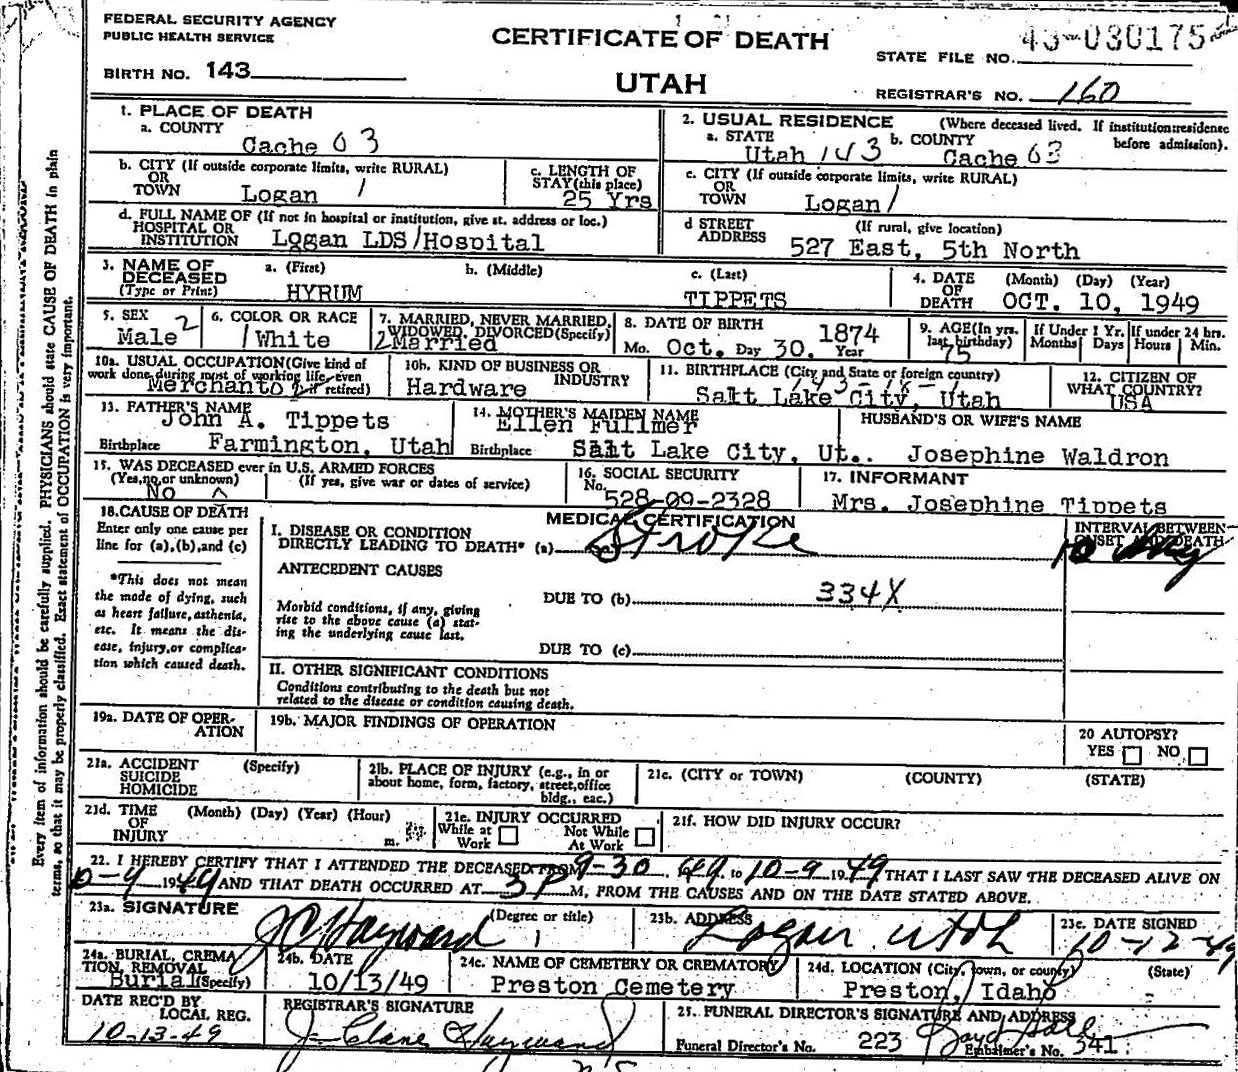 FEDERAL SECURITY AGENCY
PUBLIC HEALTH SERVICE
BIRTH NO. 143
CERTIFICATE OF DEATH
UTAH
STATE FILE NO. 43-030175
REGISTRAR'S NO. 160
1. PLACE OF DEATH
a. COUNTY
Cache 03
b. CITY (If outside corporate limits, write RURAL)
OR
TOWN Logan 1
c. LENGTH OF
STAY (this place)
25 Yrs
d. FULL NAME OF (If not in hospital or institution, give st. address or loc.)
HOSPITAL OR
INSTITUTION Logan LDS/Hospital
2. USUAL RESIDENCE (Where deceased lived. If institution:residence
before admission).
a. STATE b. COUNTY
Utah 143 Cache 03
c. CITY (If outside corporate limits, write RURAL)
OR
TOWN Logan/
d STREET (If rural, give location)
ADDRESS 527 East, 5th North
3. NAME OF
DECEASED
(Type or Print)
a. (First) b. (Middle) c. (Last)
HYRUM TIPPETS
4. DATE (Month) (Day) (Year)
OF
DEATH OCT. 10, 1949
5. SEX
Male 2
6. COLOR OR RACE
1 White
7. MARRIED, NEVER MARRIED,
WIDOWED, DIVORCED(Specify)
2 Married
8. DATE OF BIRTH 1874
Mo. Oct. Day 30. Year
9. AGE(In yrs.
last birthday)
75
If Under 1 Yr.
Months Days
If under 24 hrs.
Hours Min.
10a. USUAL OCCUPATION(Give kind of
work done during most of working life, even
if retired)
Merchant
10b. KIND OF BUSINESS OR
INDUSTRY
Hardware
11. BIRTHPLACE (City and State or foreign country)
143-18-1
Salt Lake City, Utah
12. CITIZEN OF
WHAT COUNTRY?
USA
13. FATHER'S NAME
John A. Tippets
Birthplace Farmington, Utah
14. MOTHER'S MAIDEN NAME
Ellen Fullmer
Birthplace Salt Lake City, Ut..
HUSBAND'S OR WIFE'S NAME
Josephine Waldron
15. WAS DECEASED ever in U.S. ARMED FORCES
(Yes,no,or unknown) (If yes, give war or dates of service)
No
16. SOCIAL SECURITY
No. 528-09-2328
17. INFORMANT
Mrs. Josephine Tippets
18. CAUSE OF DEATH
Enter only one cause per
line for (a),(b),and (c)
*This does not mean
the mode of dying, such
as heart failure, asthenia,
etc. It means the dis-
ease, injury, or complica-
tion which caused death.
MEDICAL CERTIFICATION
I. DISEASE OR CONDITION
DIRECTLY LEADING TO DEATH* (a) Stroke
INTERVAL BETWEEN
ONSET AND DEATH
10 day
ANTECEDENT CAUSES
DUE TO (b) 334X
Morbid conditions, if any, giving
rise to the above cause (a) stat-
ing the underlying cause last.
DUE TO (c)
II. OTHER SIGNIFICANT CONDITIONS
Conditions contributing to the death but not
related to the disease or condition causing death.
19a. DATE OF OPER-
ATION
19b. MAJOR FINDINGS OF OPERATION
20 AUTOPSY?
YES NO
21a. ACCIDENT (Specify)
SUICIDE
HOMICIDE
21b. PLACE OF INJURY (e.g., in or
about home, form, factory, street,office
bldg., eac.)
21c. (CITY or TOWN) (COUNTY) (STATE)
21d. TIME (Month) (Day) (Year) (Hour)
OF
INJURY m.
21e. INJURY OCCURRED
While at Not While
Work At Work
21f. HOW DID INJURY OCCUR?
22. I HEREBY CERTIFY THAT I ATTENDED THE DECEASED FROM 9-30, 1949, to 10-9 1949 THAT I LAST SAW THE DECEASED ALIVE ON
10-9 1949 AND THAT DEATH OCCURRED AT 3 P M, FROM THE CAUSES AND ON THE DATE STATED ABOVE.
23a. SIGNATURE (Degree or title)
J C Hayward
23b. ADDRESS
Logan Utah
23c. DATE SIGNED
10-12-49
24a. BURIAL, CREMA
TION, REMOVAL
(Specify)
Burial
24b. DATE
10/13/49
24c. NAME OF CEMETERY OR CREMATORY
Preston Cemetery
24d. LOCATION (City, town, or county) (State)
Preston, Idaho
DATE REC'D BY
LOCAL REG.
10-13-49
REGISTRAR'S SIGNATURE
J Clare Hayward
25. FUNERAL DIRECTOR'S SIGNATURE AND ADDRESS
Funeral Director's No. 223
Embalmer's No. 341
Every item of information should be carefully supplied. PHYSICIANS should state CAUSE OF DEATH in plain
terms, so that it may be properly classified. Exact statement of OCCUPATION is very important.